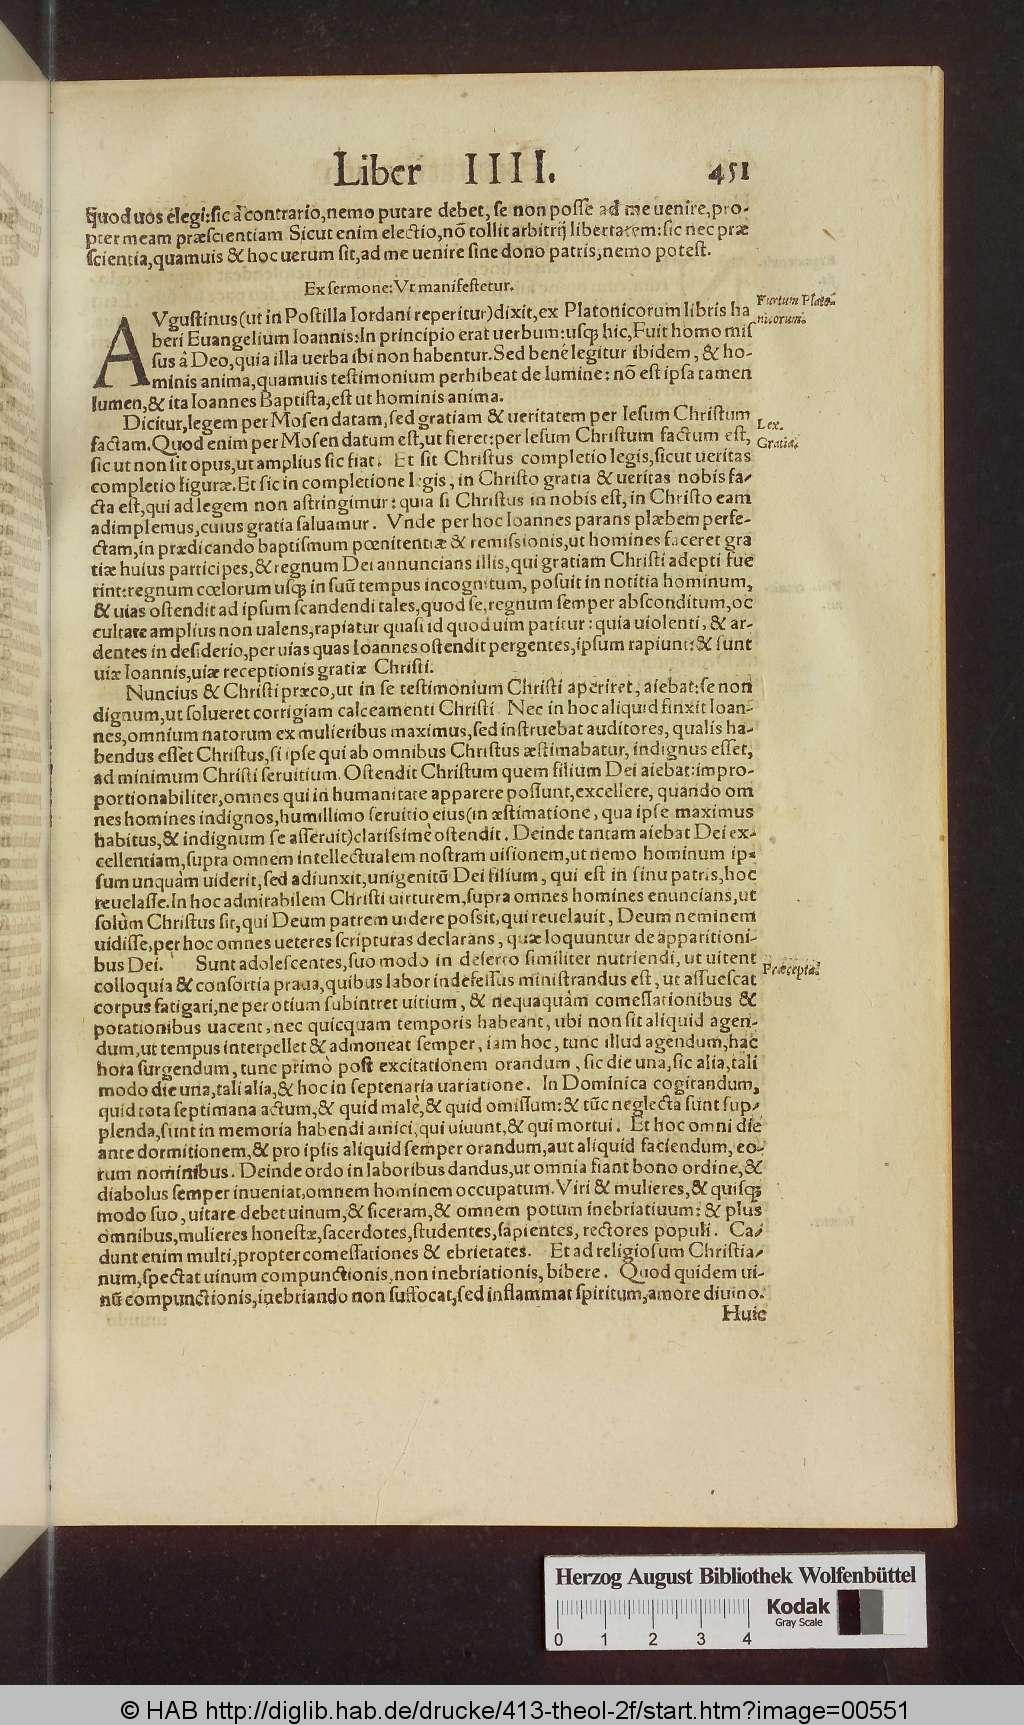 Liber IIII. 451
quod uos elegi:sic à contrario,nemo putare debet, se non posse ad me uenire, pro-
pter meam præscientiam Sicut enim electio,nō tollit arbitrij libertatem:sic nec præ
scientia,quamuis & hoc uerum sit,ad me uenire sine dono patris,nemo potest.
Ex sermone: Vt manifestetur.
AVgustinus(ut in Postilla Iordani reperitur)dixit,ex Platonicorum libris ha
Furtum Plato-
nicorum.
beri Euangelium Ioannis:In principio erat uerbum:usq; hic,Fuit homo mis
sus à Deo,quia illa uerba ibi non habentur.Sed bene legitur ibidem, & ho-
minis anima,quamuis testimonium perhibeat de lumine: nō est ipsa tamen
lumen,& ita Ioannes Baptista,est ut hominis anima.
Dicitur,legem per Mosen datam,sed gratiam & ueritatem per Iesum Christum
Lex.
Gratia.
factam.Quod enim per Mosen datum est,ut fieret:per Iesum Christum factum est,
sic ut non sit opus,ut amplius sic fiat. Et sit Christus completio legis,sicut ueritas
completio figuræ.Et sic in completione legis, in Christo gratia & ueritas nobis fa-
cta est,qui ad legem non astringimur: quia si Christus in nobis est, in Christo eam
adimplemus,cuius gratia saluamur. Vnde per hoc Ioannes parans plæbem perfe-
ctam,in prædicando baptismum pœnitentiæ & remissionis,ut homines faceret gra
tiæ huius participes,& regnum Dei annuncians illis,qui gratiam Christi adepti fue
rint:regnum cœlorum usq; in suū tempus incognitum, posuit in notitia hominum,
& uias ostendit ad ipsum scandendi tales,quod se,regnum semper absconditum,oc
cultare amplius non ualens,rapiatur quasi id quod uim patitur: quia uiolenti, & ar-
dentes in desiderio,per uias quas Ioannes ostendit pergentes,ipsum rapiunt:& sunt
uiæ Ioannis,uiæ receptionis gratiæ Christi.
Nuncius & Christi præco,ut in se testimonium Christi aperiret, aiebat:se non
dignum,ut solueret corrigiam calceamenti Christi Nec in hoc aliquid finxit Ioan-
nes,omnium natorum ex mulieribus maximus,sed instruebat auditores, qualis ha-
bendus esset Christus,si ipse qui ab omnibus Christus æstimabatur, indignus esset,
ad minimum Christi seruitium. Ostendit Christum quem filium Dei aiebat:impro-
portionabiliter,omnes qui in humanitate apparere possunt,excellere, quando om
nes homines indignos,humillimo seruitio eius(in æstimatione, qua ipse maximus
habitus,& indignum se asseruit)clarissimè ostendit. Deinde tantam aiebat Dei ex-
cellentiam,supra omnem intellectualem nostram uisionem,ut nemo hominum ip-
sum unquàm uiderit,sed adiunxit,unigenitū Dei filium, qui est in sinu patris,hoc
reuelasse.In hoc admirabilem Christi uirtutem,supra omnes homines enuncians,ut
solùm Christus sit,qui Deum patrem uidere possit,qui reuelauit, Deum neminem
uidisse,per hoc omnes ueteres scripturas declarans, quæ loquuntur de apparitioni-
bus Dei. Sunt adolescentes,suo modo in deserto similiter nutriendi, ut uitent
Præcepta.
colloquia & consortia praua,quibus labor indefessus ministrandus est, ut assuescat
corpus fatigari,ne per otium subintret uitium, & nequaquàm comessationibus &
potationibus uacent, nec quicquam temporis habeant, ubi non sit aliquid agen-
dum,ut tempus interpellet & admoneat semper, iam hoc, tunc illud agendum,hac
hora surgendum, tunc primò post excitationem orandum, sic die una,sic alia,tali
modo die una,tali alia,& hoc in septenaria uariatione. In Dominica cogitandum,
quid tota septimana actum,& quid malè,& quid omissum:& tūc neglecta sunt sup-
plenda,sunt in memoria habendi amici,qui uiuunt,& qui mortui. Et hoc omni die
ante dormitionem,& pro ipsis aliquid semper orandum,aut aliquid faciendum, eo-
rum nominibus. Deinde ordo in laboribus dandus,ut omnia fiant bono ordine,&
diabolus semper inueniat,omnem hominem occupatum. Viri & mulieres,& quisq;
modo suo, uitare debet uinum,& siceram,& omnem potum inebriatiuum: & plus
omnibus,mulieres honestæ,sacerdotes,studentes,sapientes, rectores populi. Ca-
dunt enim multi,propter comessationes & ebrietates. Et ad religiosum Christia-
num,spectat uinum compunctionis,non inebriationis, bibere. Quod quidem ui-
nū compunctionis,inebriando non suffocat,sed inflammat spiritum,amore diuino.
Huic
Herzog August Bibliothek Wolfenbüttel
Kodak
Gray Scale
0 1 2 3 4
© HAB http://diglib.hab.de/drucke/413-theol-2f/start.htm?image=00551